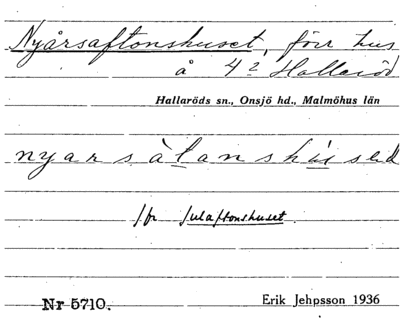 Nyårsaftonshuset, förr hus
å 4² Hallaröd
Hallaröds sn., Onsjö hd., Malmöhus län
jfr Julaftonshuset
Nr 5710.
Erik Jehpsson 1936